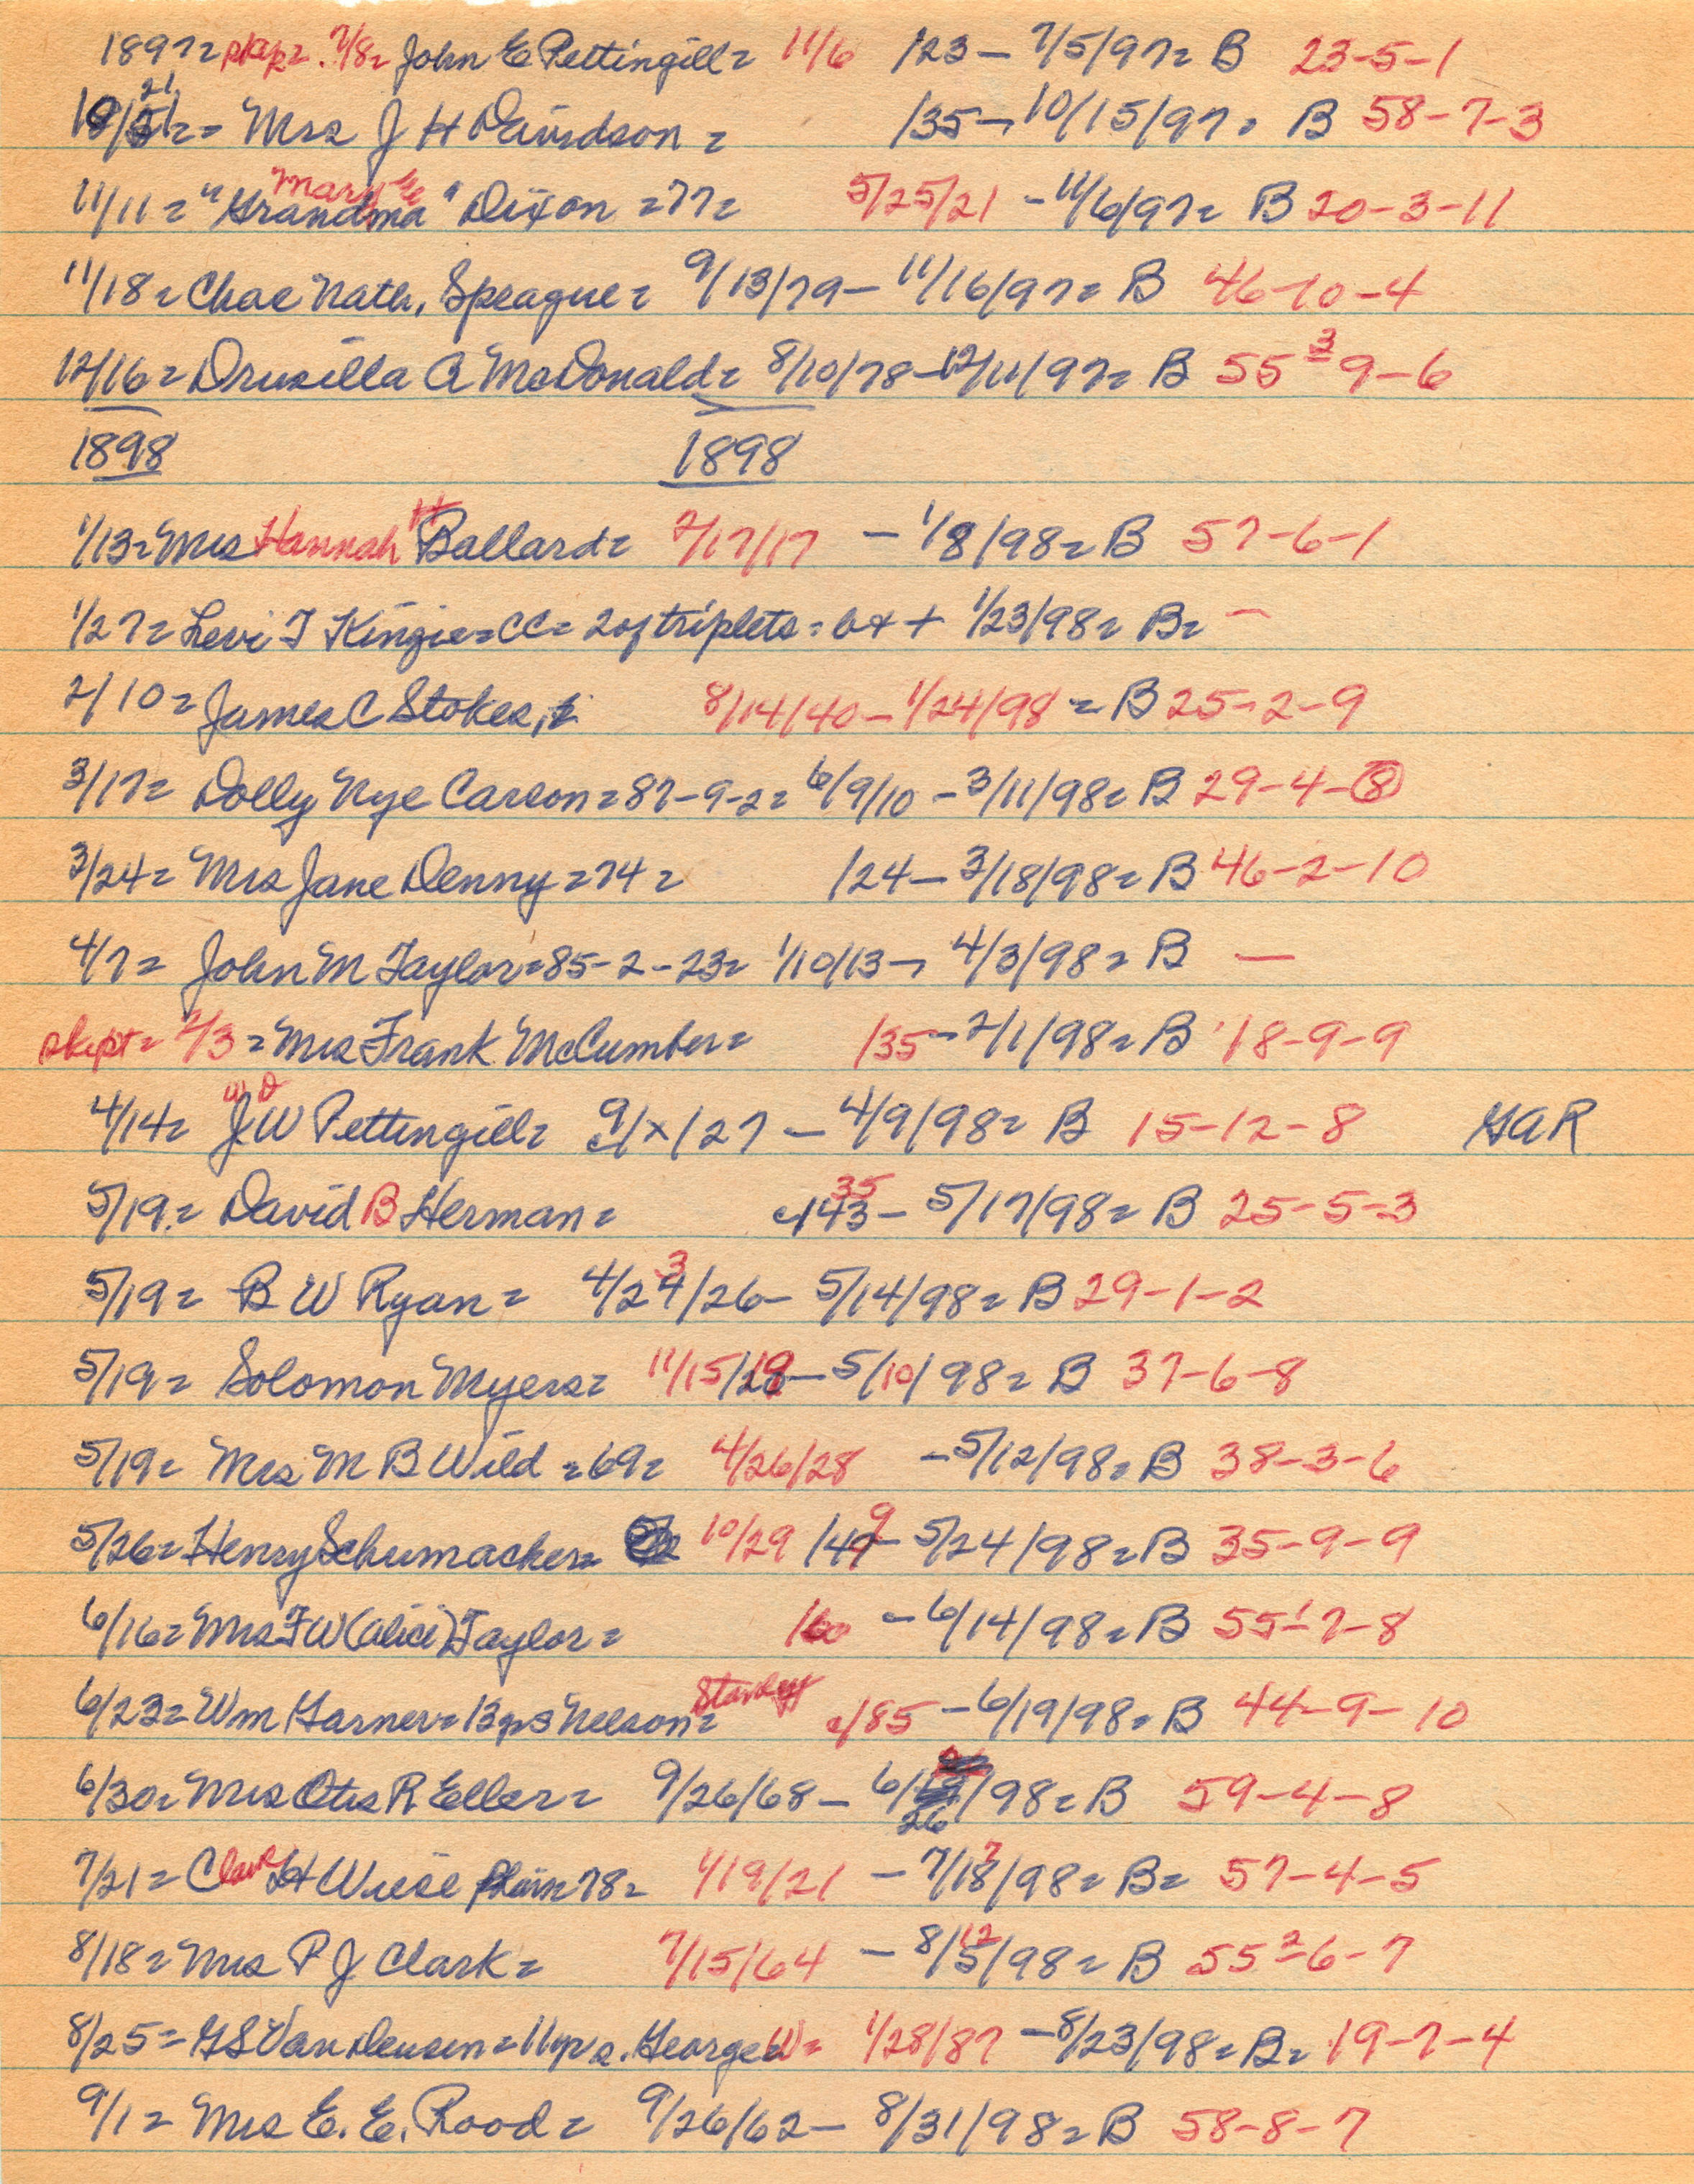 1897= skip= 7/8= John E Pettingill= 11/6 /23 – 7/5/97= B 23-5-1
10/21= Mrs J H Davidson = /35 – 10/15/97= B 58-7-3
11/11= "Grandma" Mary E Dixon =77= 5/25/21 – 11/6/97= B 20-3-11
11/18= Chas Nath, Sprague= 9/13/79 – 11/16/97= B 46-10-4
12/16= Drusilla A McDonald= 8/10/78 – 12/11/97= B 55-3-9-6
1898 1898
1/13= Mrs Hannah H Ballard= 2/17/17 – 1/8/98= B 57-6-1
1/27= Levi T Kingie=CC= 2 of triplets= b + 1/23/98= B= –
2/10= James C Stokes, 8/14/40 – 1/24/98 = B 25-2-9
3/17= Dolly Nye Carson=87-9-2= 6/9/10 – 3/11/98= B 29-4-8
3/24= Mrs Jane Denny=74= /24 – 3/18/98= B 46-2-10
4/7= John M Taylor=85-2-23= 1/10/13 – 4/3/98= B –
skipt= 2/3= Mrs Frank McCumber= /35 – 2/1/98= B 18-9-9
4/14= W D J W Pettingill= 9/x/27 – 4/9/98= B 15-12-8 GAR
5/19= David B Herman= c/43 35 – 5/17/98= B 25-5-3
5/19= B W Ryan= 4/24 3/26 – 5/14/98= B 29-1-2
5/19= Solomon Myers= 11/15/19 – 5/10/98= B 37-6-8
5/19= Mrs M B Wild =69= 4/26/28 – 5/12/98= B 38-3-6
5/26= Henry Schumacher= 10/29 /49 – 5/24/98= B 35-9-9
6/16= Mrs F W (Alice) Taylor= /60 – 6/14/98= B 55-1-7-8
6/23= Wm Garner= 13 yrs Nelson= c/85 – 6/19/98= B 44-9-10
6/30= Mrs Otis R Eller= 9/26/68 – 6/26/98= B 59-4-8
7/21= Claus H Wiese =78= 1/19/21 – 7/18 7/98= B= 57-4-5
8/18= Mrs P J Clark= 7/15/64 – 8/5 12/98= B 55-2-6-7
8/25= G S Van Deusen= 11 yrs. George W= 1/28/87 – 8/23/98= B= 19-7-4
9/1= Mrs E. E. Rood= 9/26/62 – 8/31/98= B 58-8-7